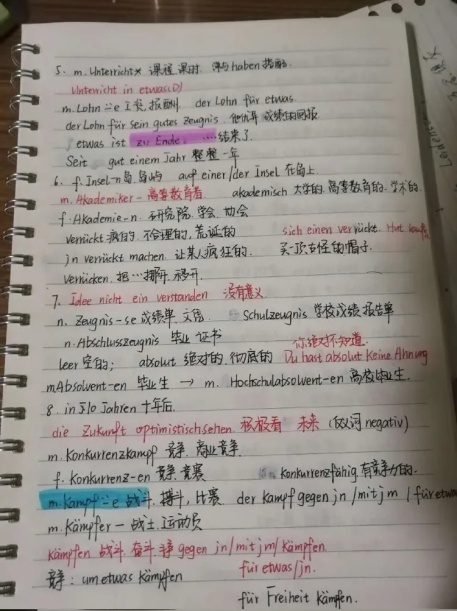 5. m. Unterricht x 课程 课时. 常与haben搭配
Unterricht in etwas(D)
m. Lohn ⸚e 工资, 报酬 der Lohn für etwas
der Lohn für sein gutes Zeugnis. 他优异成绩的回报
etwas ist zu Ende. ...结束了.
Seit gut einem Jahr 整整一年
6. f. Insel-n 岛 岛屿 auf einer/der Insel 在岛上
m. Akademiker - 高等教育者 akademisch 大学的, 高等教育的, 学术的
f. Akademie-n 研究院, 学会, 协会
verrückt 疯的, 不合理的, 荒诞的 sich einen verrückt. Hut kaufen
jn verrückt machen 让某人疯狂的. 买一顶古怪的帽子.
verrücken. 把...挪开, 移开.
7. Idee nicht ein verstanden 没有意义
n. Zeugnis -se 成绩单, 文凭 Schulzeugnis 学校成绩报告单
n. Abschlusszeugnis 毕业证书 你绝对不知道.
leer 空的; absolut 绝对的, 彻底的 Du hast absolut keine Ahnung
m Absolvent-en 毕业生 → m. Hochschulabsolvent-en 高校毕业生.
8. in 5/10 Jahren 十年后.
die Zukunft optimistisch sehen. 积极看 未来 (反义词 negativ)
m. Konkurrenzkampf 竞争. 商业竞争.
f. Konkurrenz-en 竞争, 竞赛 konkurrenzfähig 有竞争力的.
m. Kampf ⸚e 战斗, 搏斗, 比赛 der Kampf gegen jn / mit jm / für etwas
m. Kämpfer - 战士. 运动员
kämpfen 战斗 奋斗 gegen jn / mit jm / kämpfen.
竞争: um etwas kämpfen für etwas/jn.
für Freiheit kämpfen.